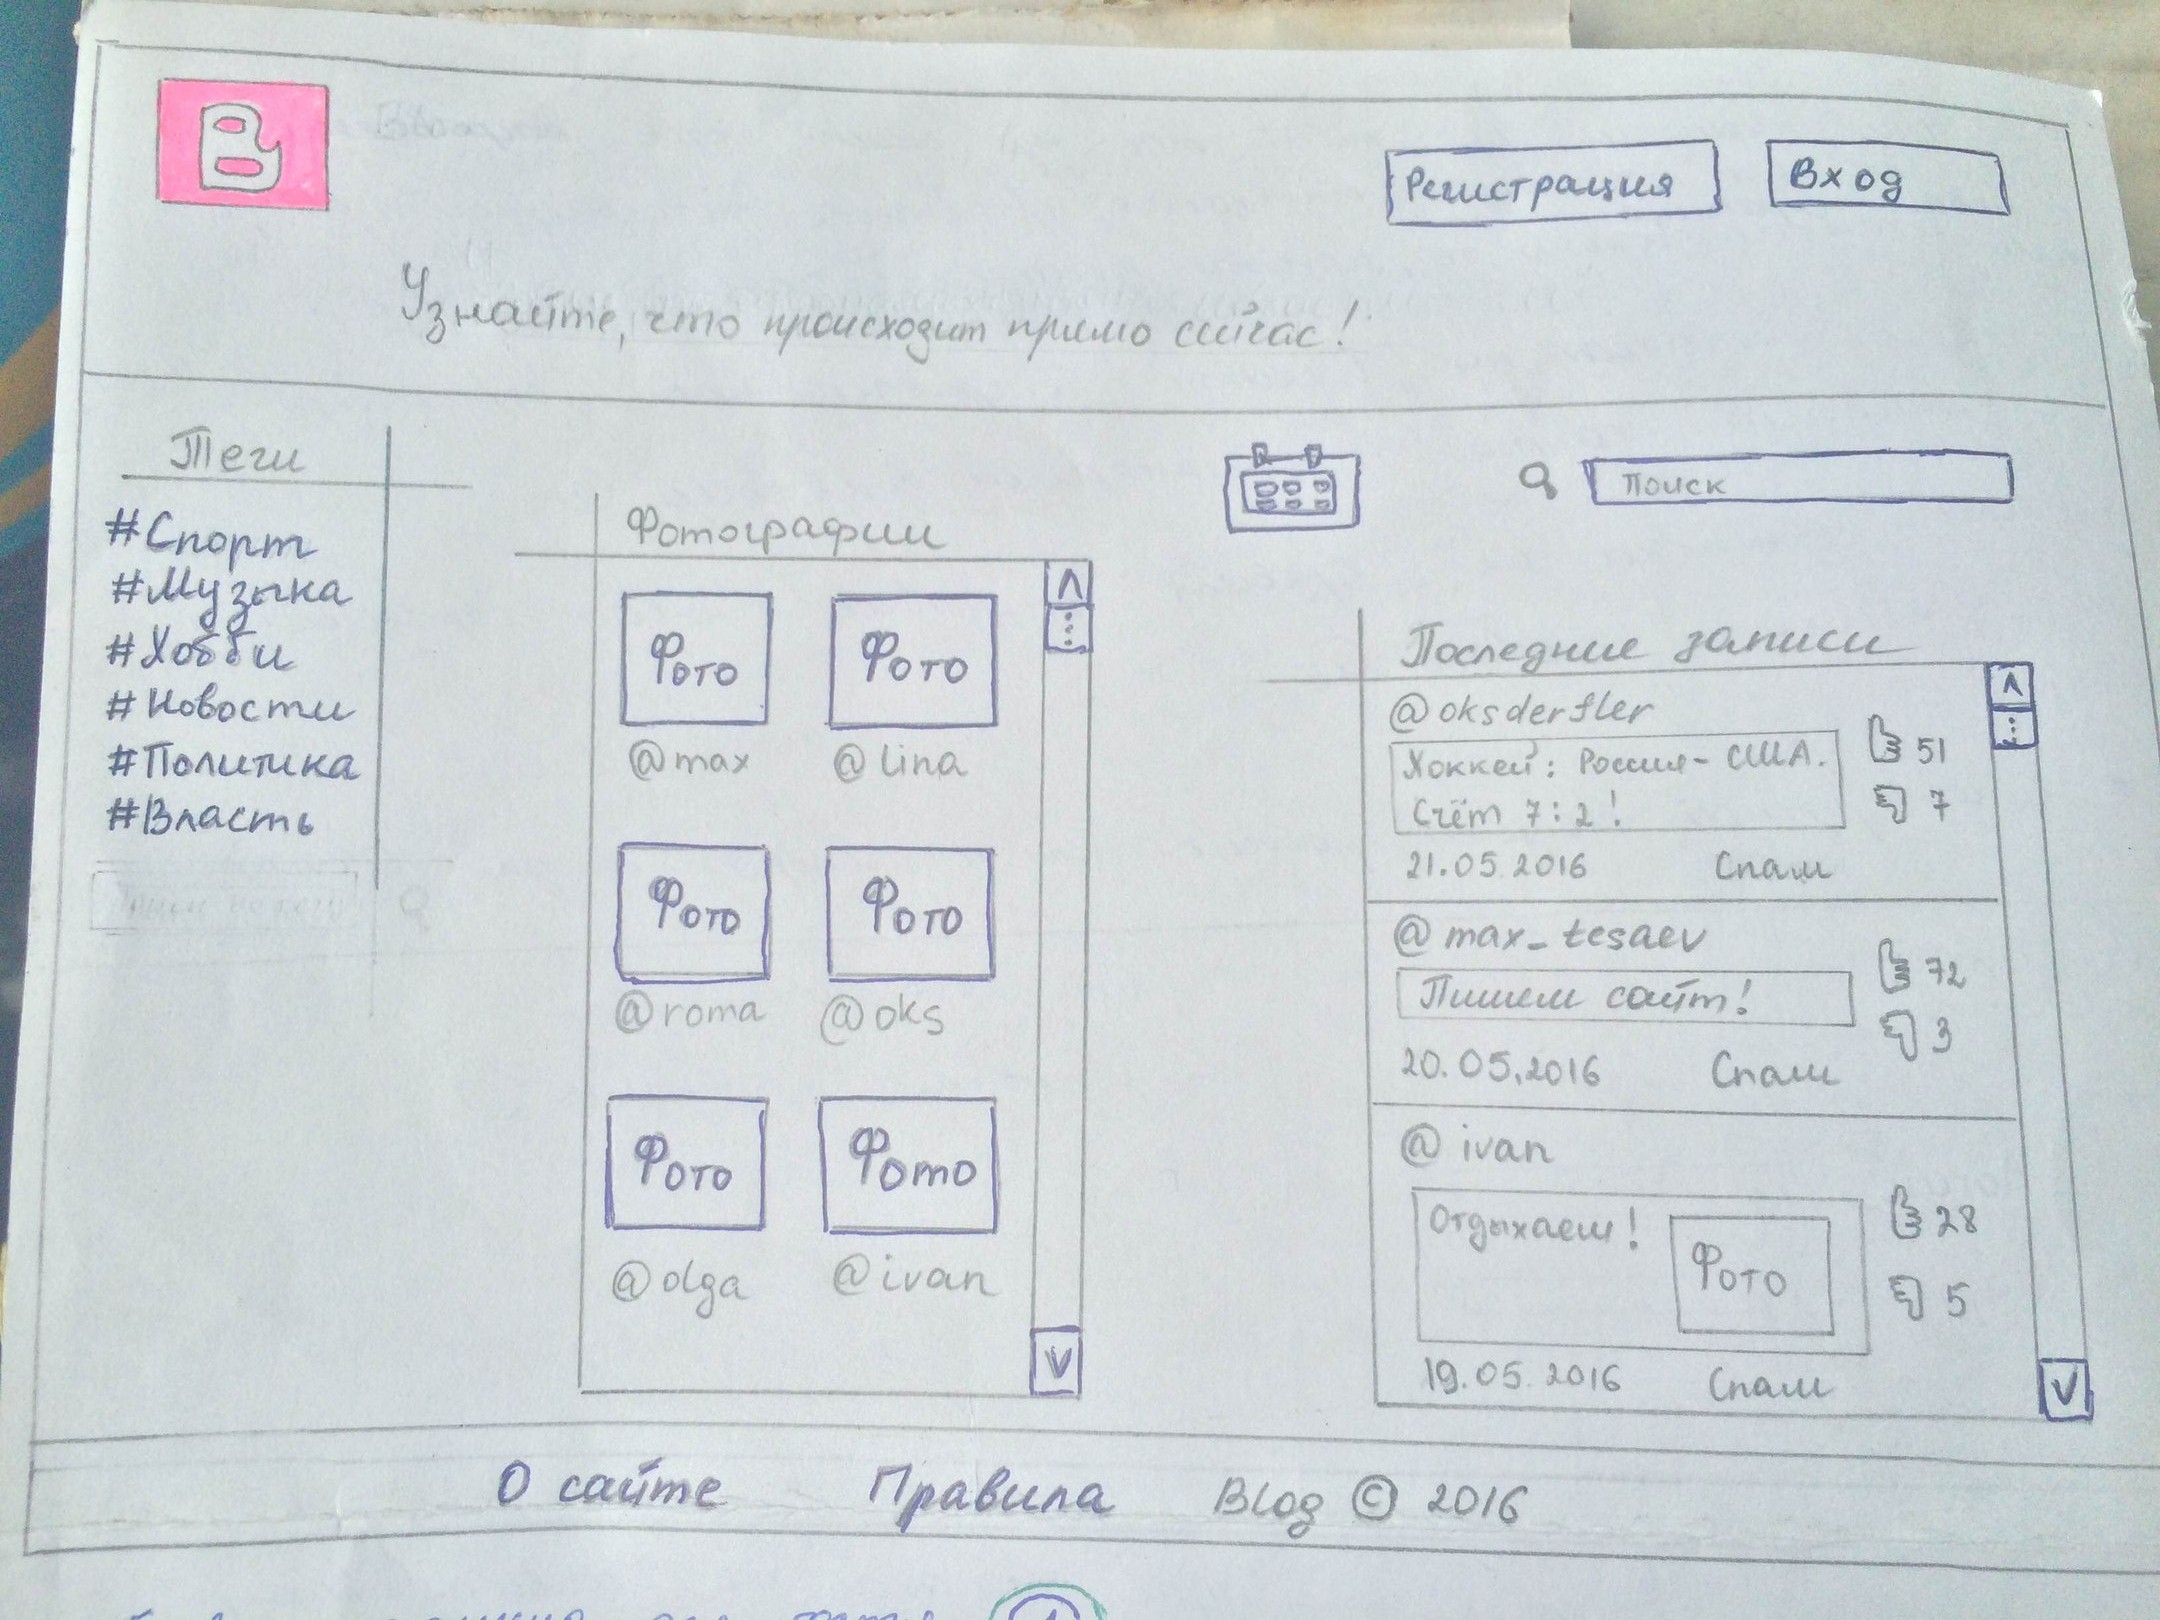 B
Регистрация
Вход
Узнайте, что происходит прямо сейчас!
Теги
#Спорт
#Музыка
#Хобби
#Новости
#Политика
#Власть
Фотографии
Фото Фото
@max @lina
Фото Фото
@roma @oks
Фото Фото
@olga @ivan
Поиск
Последние записи
@oksderfler
Хоккей: Россия - США.
Счёт 7:2!
51
7
21.05.2016 Спам
@max_tesaev
Пишем сайт!
72
3
20.05.2016 Спам
@ivan
Отдыхаем!
Фото
28
5
19.05.2016 Спам
О сайте Правила Blog © 2016